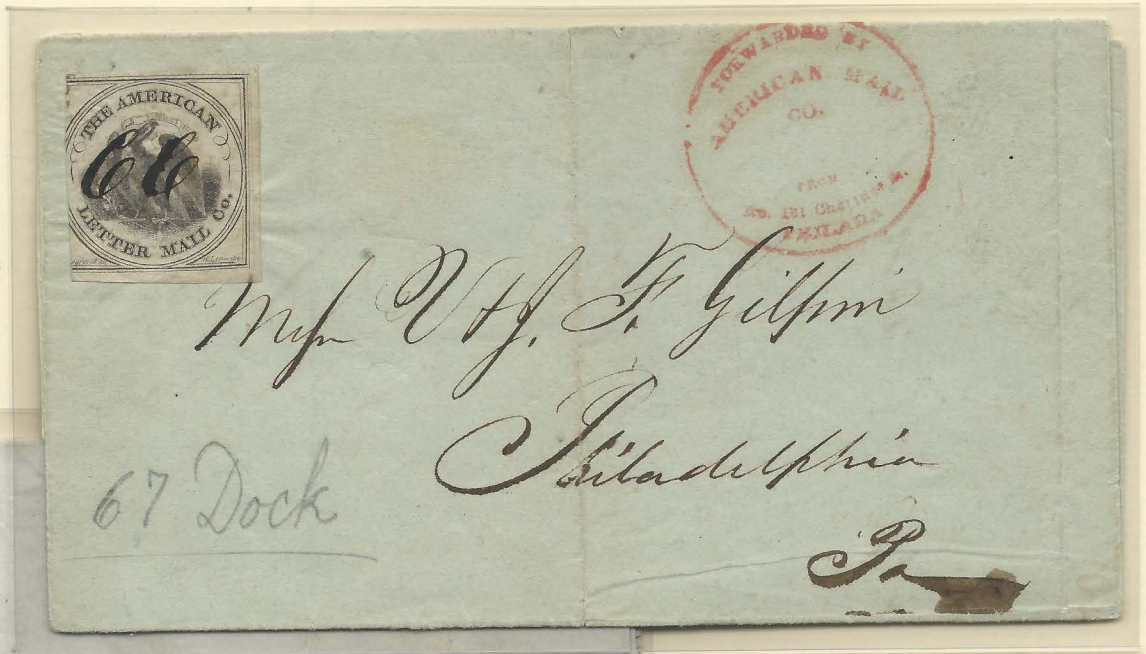 THE AMERICAN
LETTER MAIL Co.
FORWARDED BY
AMERICAN MAIL
CO.
FROM
No. 101 Chestnut St.
PHILADA
V & J. F. Gilpin
Philadelphia
Pa
67 Dock